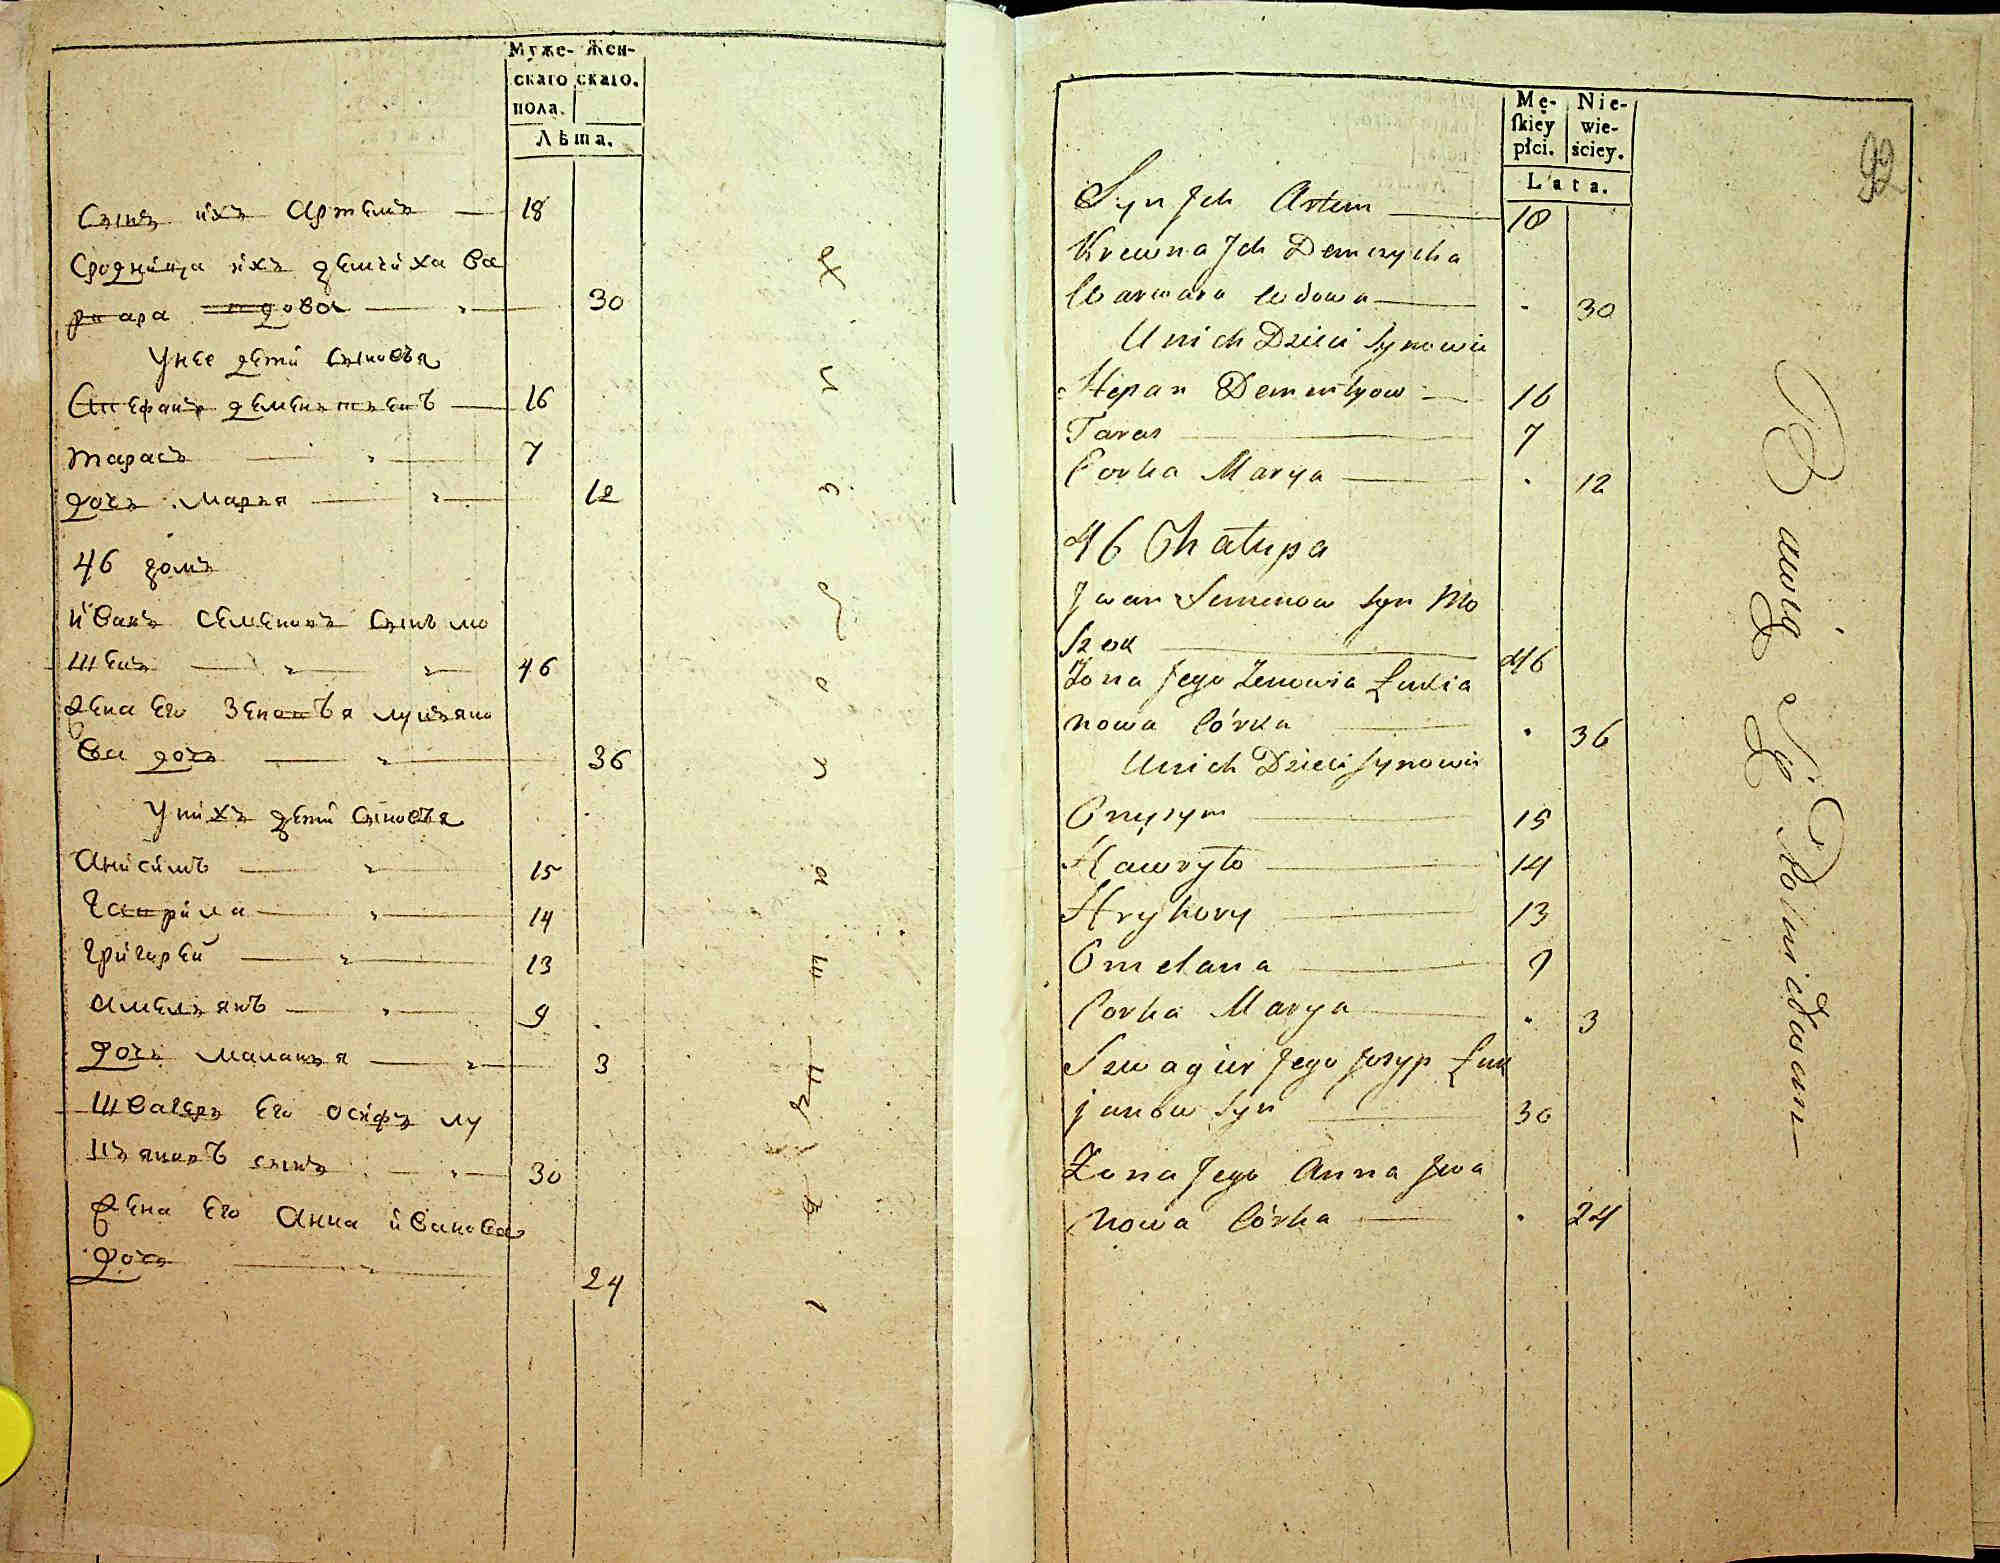 Муже- Жен-
скаго скаго.
пола.
Лѣта.
Сынъ ихъ Артемъ — 18
Сродница ихъ демчиха Ва
рвара вдова — 30
У нее дети сыновья
Стефанъ дементьевъ — 16
Тарасъ — 7
дочь Марья — 12
46 домъ
Иванъ Семеновъ сынъ мо
шекъ — 46
Жена Его Зеновья лукъяно
ва дочь — 36
У нихъ дети сыновья
Анисимъ — 15
Гаврила — 14
Григорей — 13
Амельянъ — 9
дочь Маланья — 3
Швагеръ Его осифъ лу
къяновъ сынъ — 30
Жена Его Анна Иванова
дочь — 24
Mę- Nie-
skiey wie-
płci. ściey.
Lata.
92
Syn Jch Artem — 18
Krewna Jch Demczycha
Warwara wdowa — 30
U nich Dzieci Synowie
Stepan Dementyow — 16
Taras — 7
Corka Marya — 12
46 Chałupa
Jwan Semenow Syn Mo
szek — 46
Żona Jego Zenowia Łukia
nowa Córka — 36
U nich Dzieci Synowie
Onysym — 15
Hawryło — 14
Hryhory — 13
Omelana — 9
Corka Marya — 3
Szwagier Jego Josyp Łuk
janow Syn — 30
Żona Jego Anna Jwa
nowa Córka — 24